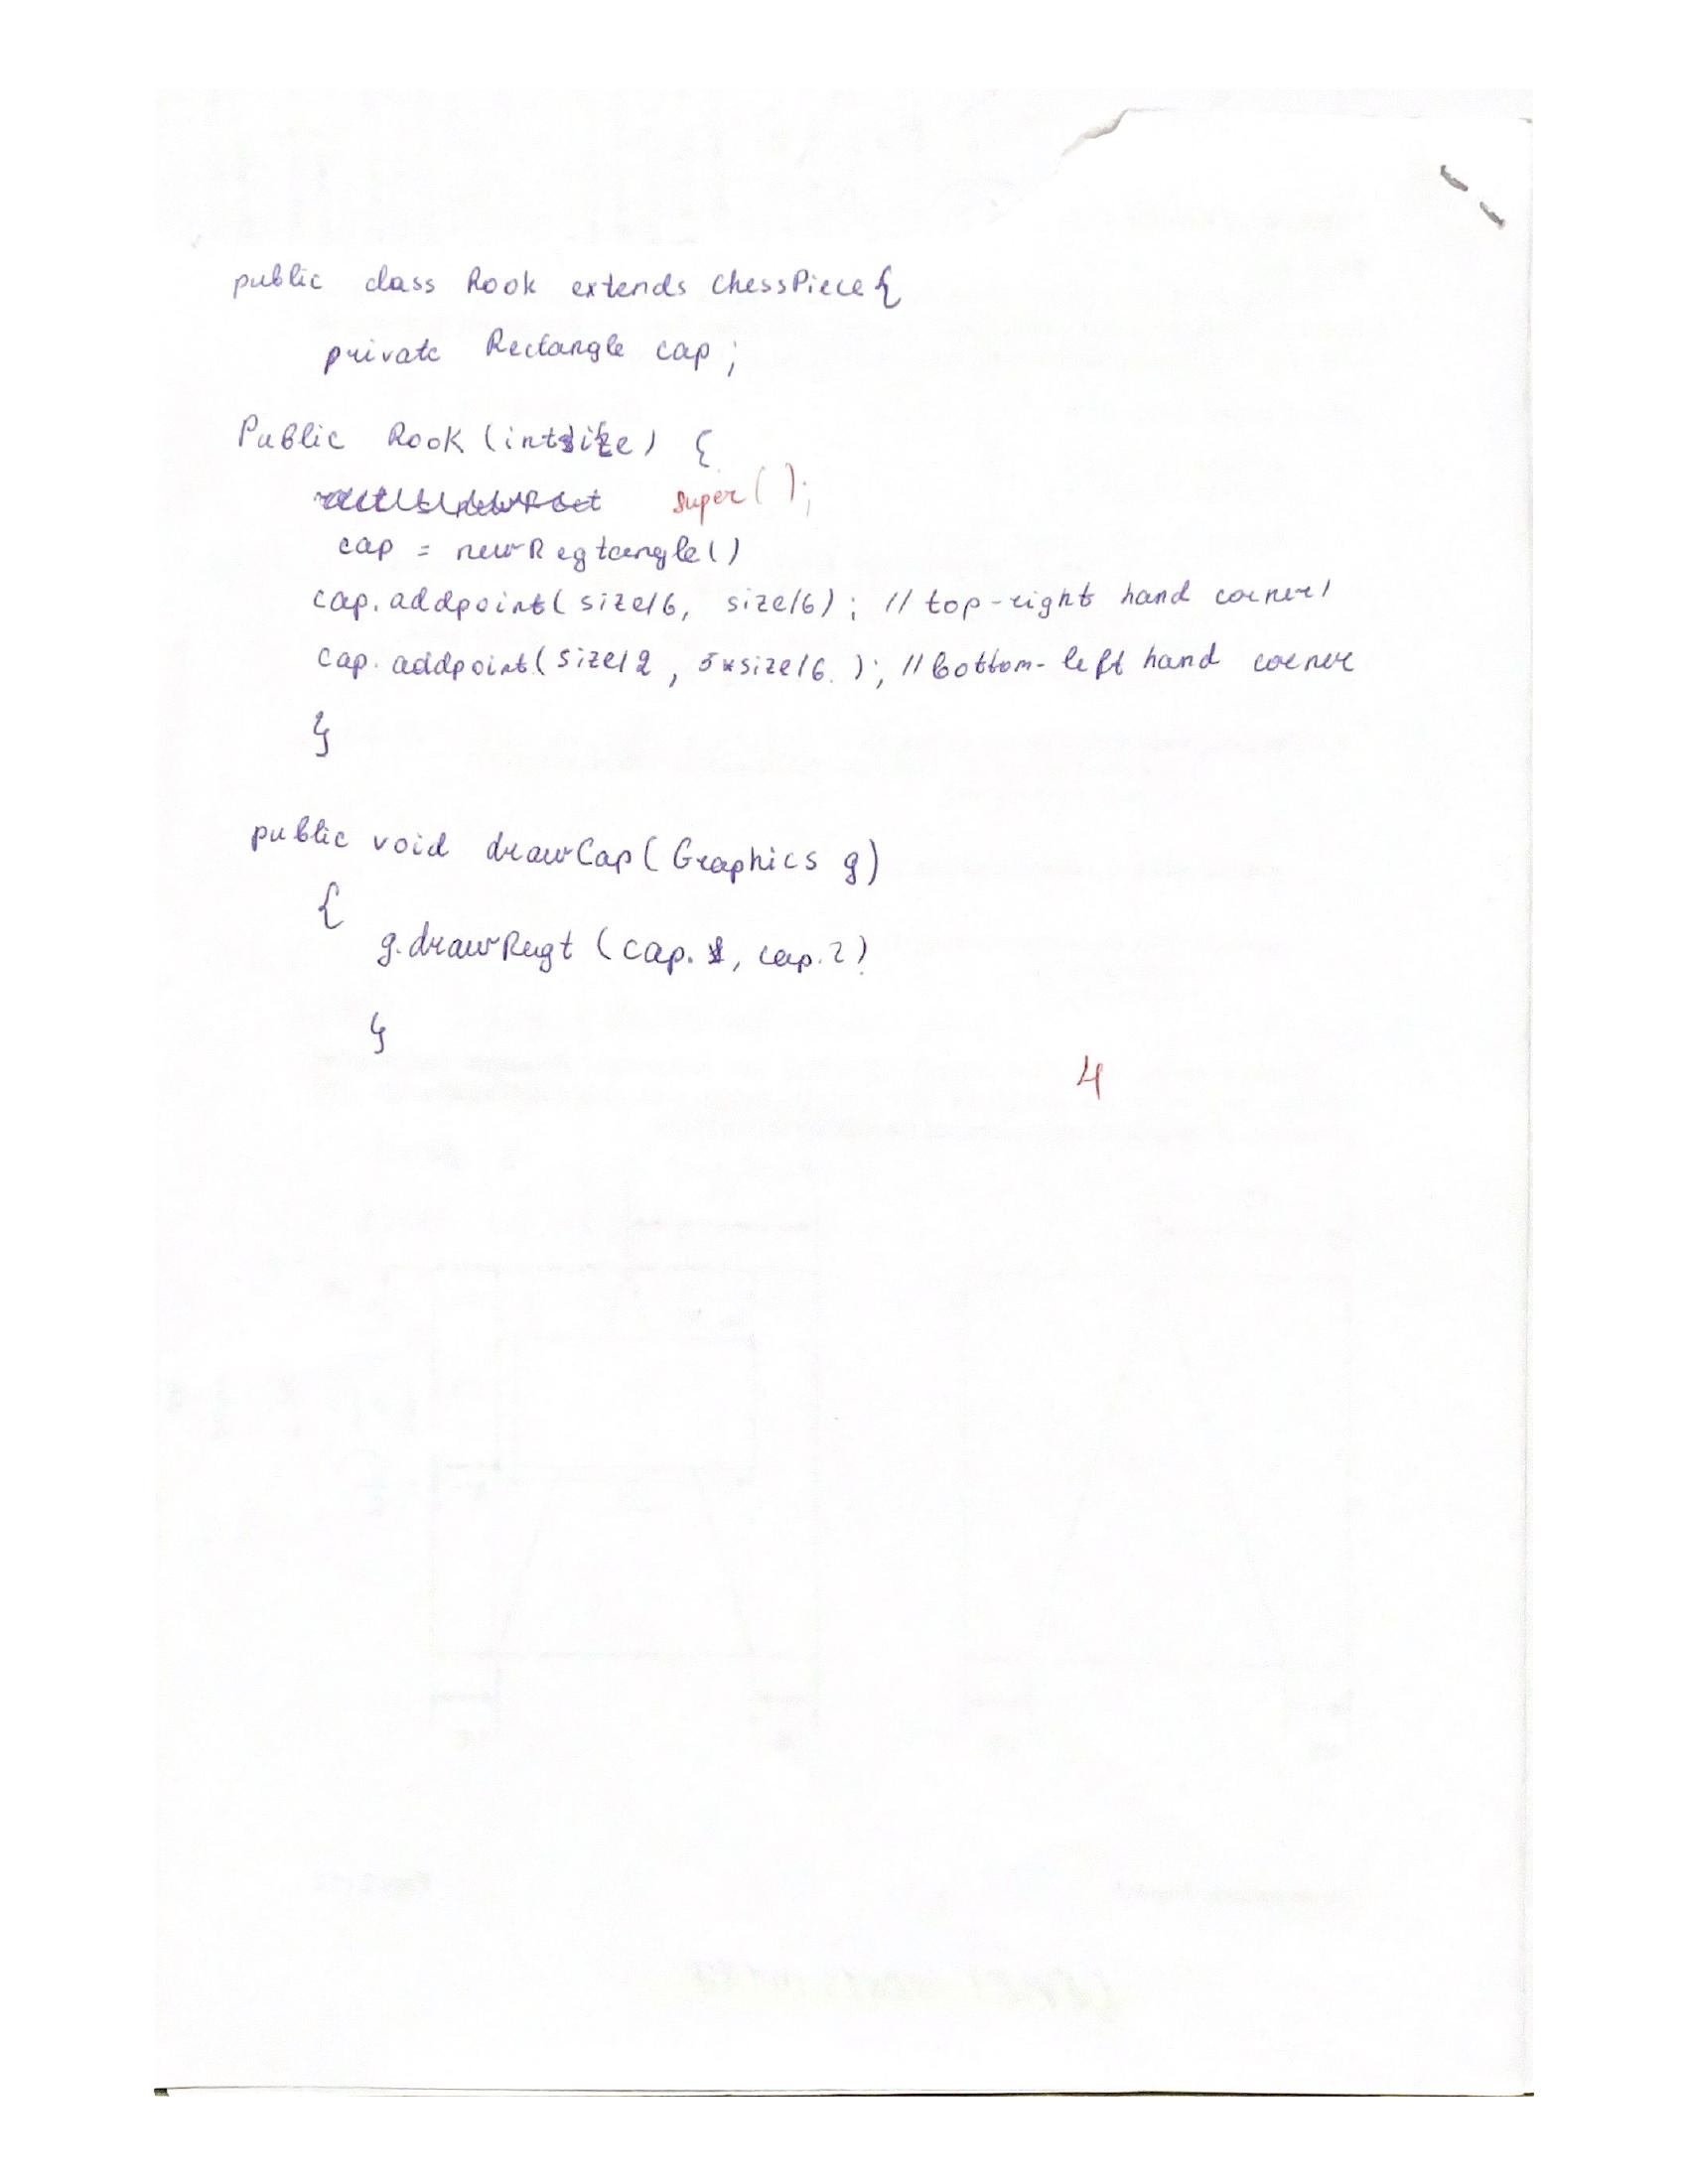 public class Rook extends ChessPiece {
private Rectangle cap;
Public Rook (int size) {
super();
cap = new Regtangle()
cap.addpoint( size/6, size/6); // top-right hand corner
cap.addpoint( size/2, 5*size/6. ); // bottom-left hand corner
}
public void drawCap( Graphics g)
{
g.drawRegt (cap.1, cap.2)
}
4